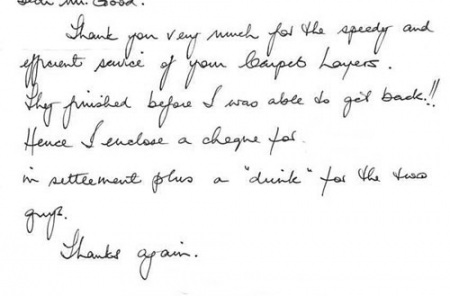 Dear Mr. Good.
Thank you very much for the speedy and
efficient service of your Carpet Layers.
They finished before I was able to get back!!
Hence I enclose a cheque for.
in settlement plus a "drink" for the two
guys.
Thanks again.